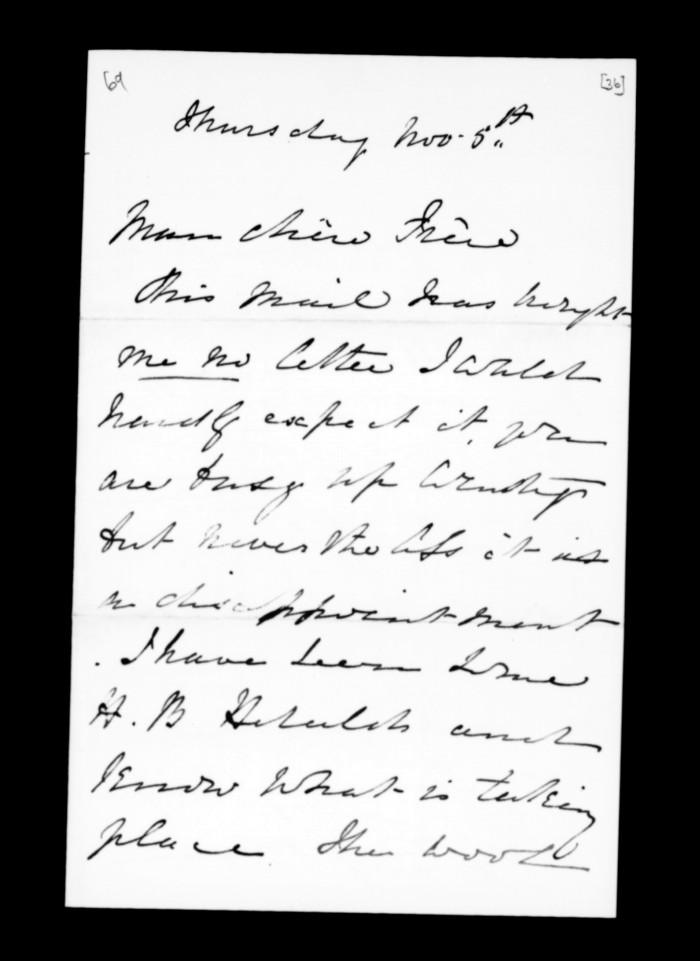 [69
[36]
Thursday Nov. 5th
Mon chère Frère
This mail has brought
me no letter I could
hardly expect it, you
are busy up country
but never the less it is
a disappointment
. I have seen some
H. B Heralds and
know what is taking
place The wool